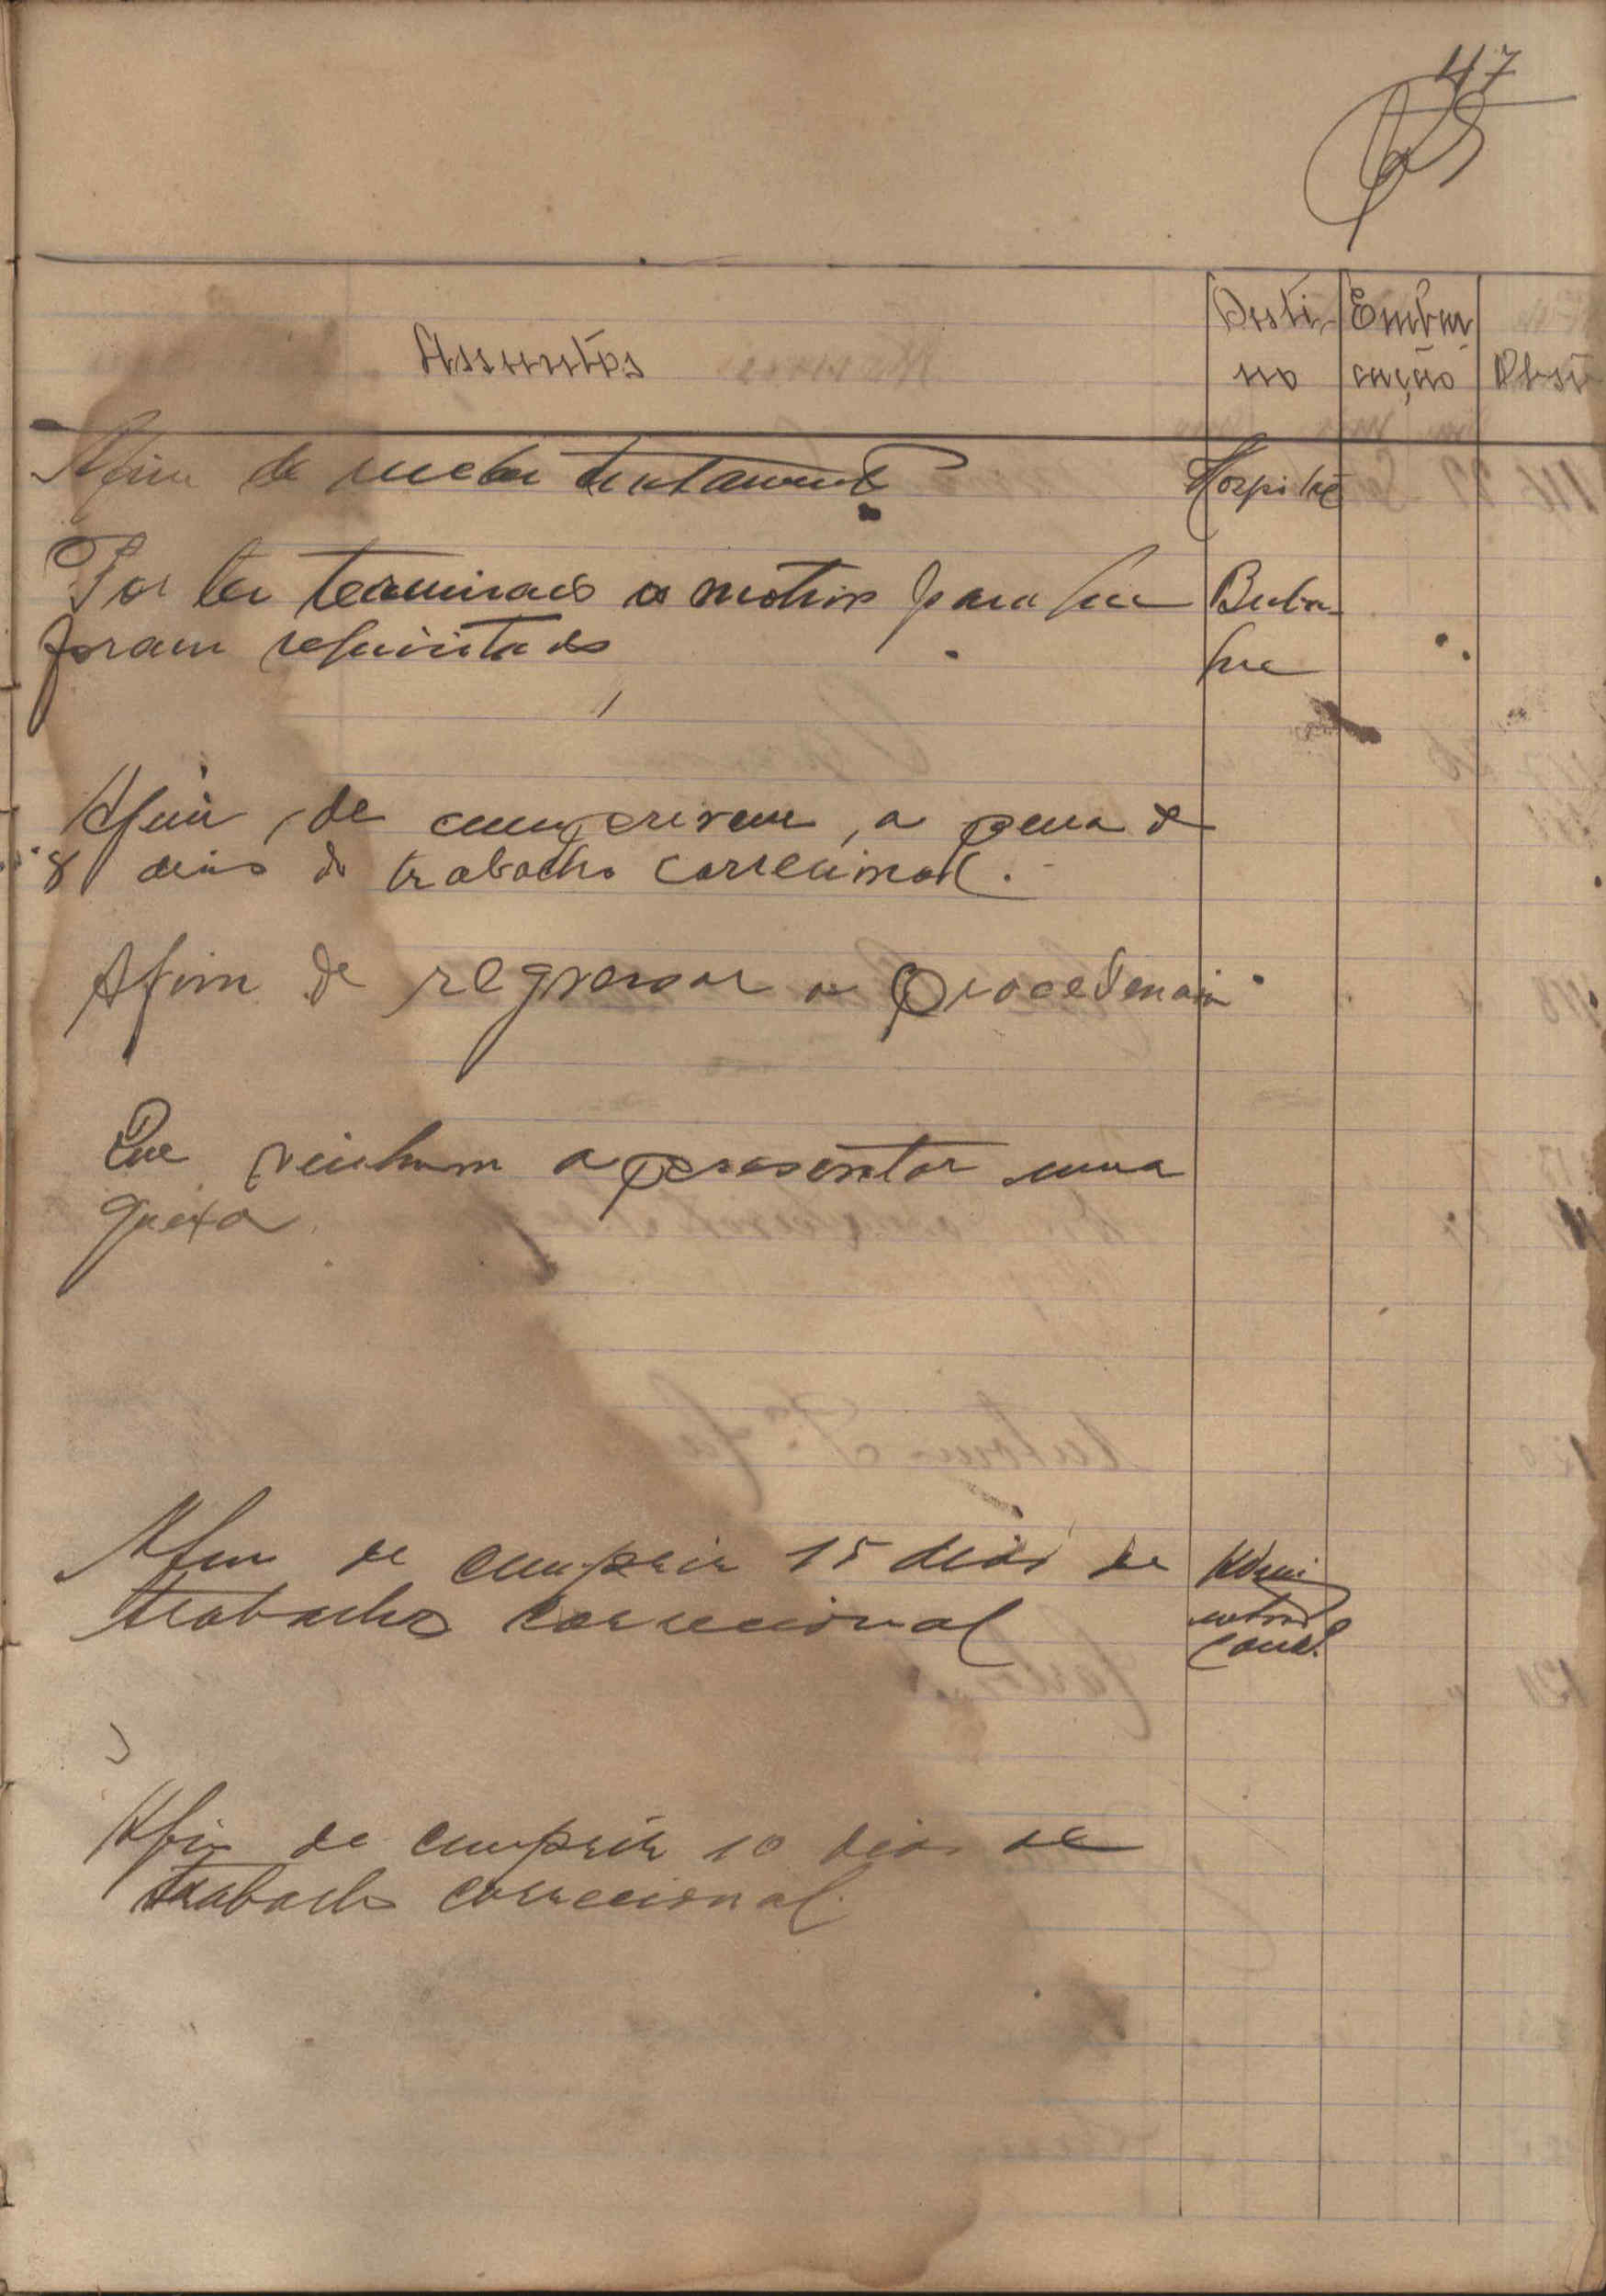 47
Assuntos
Desti-
no
Embar
cação
Obse
Afim de receber tratamento
Hospital
Por ter terminado os motivos para que
Buba
foram requisitados
que
Afim, de cumprirem, a pena de
8 dias de trabalho correcional.
Afim de regressar a procedencia
Que vinham apresentar uma
queixa
Afim de cumprir 15 dias de
trabalho correcional
Admi
Conc.
Afim de cumprir 10 dias de
trabalho correccional.